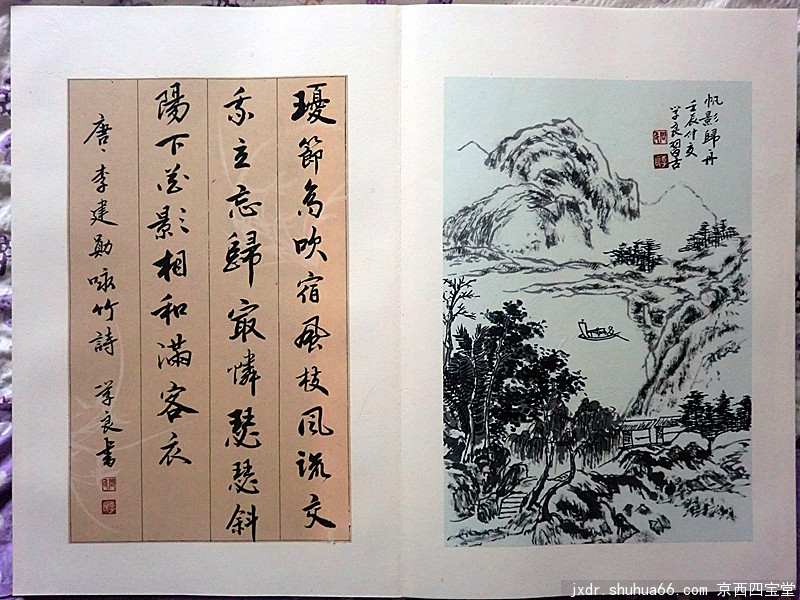 瓊節高吹宿鳳枝風流交
我立忘歸㝡憐瑟瑟斜
陽下花影相和滿客衣
唐、李建勛咏竹詩 学良書
帆影歸舟
壬辰
学良習古
jxdr.shuhua66.com 京西四宝堂